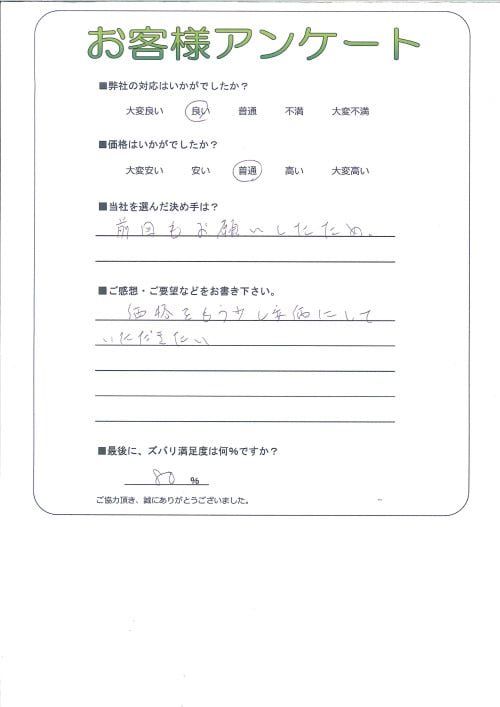 お客様アンケート
■弊社の対応はいかがでしたか？
大変良い 良い 普通 不満 大変不満
■価格はいかがでしたか？
大変安い 安い 普通 高い 大変高い
■当社を選んだ決め手は？
前回もお願いしたため。
■ご感想・ご要望などをお書き下さい。
価格をもう少し安価にして
いただきたい
■最後に、ズバリ満足度は何%ですか？
80 %
ご協力頂き、誠にありがとうございました。